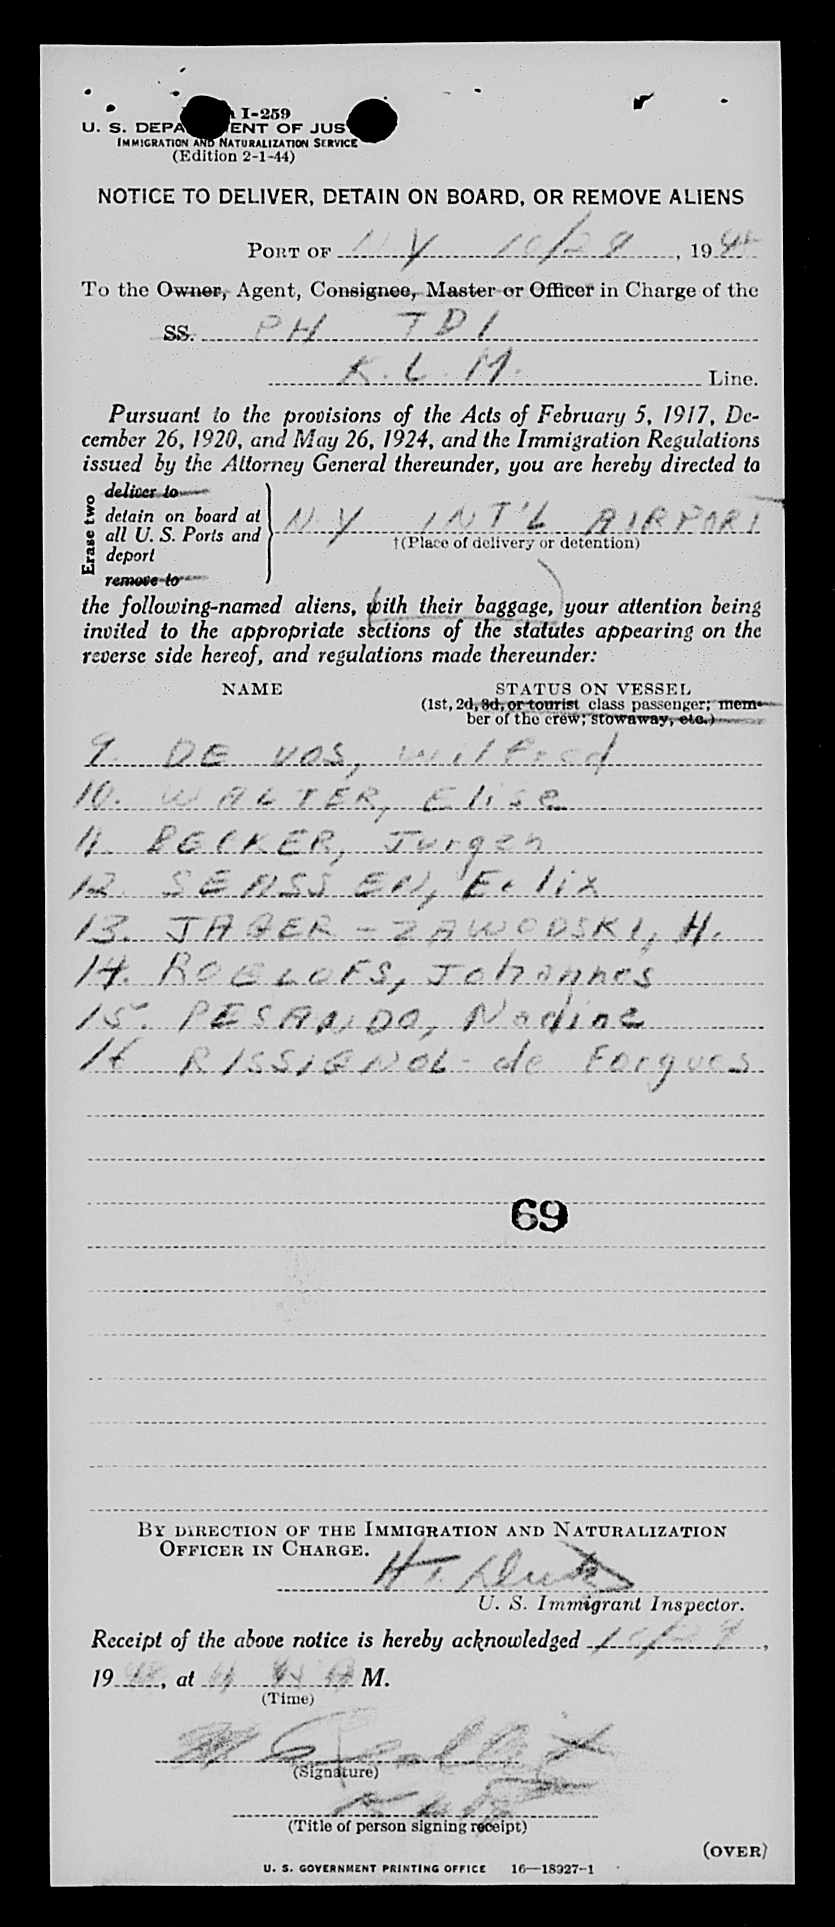 I-259
U. S. DEPA ENT OF JUS
IMMIGRATION AND NATURALIZATION SERVICE
(Edition 2-1-44)
NOTICE TO DELIVER, DETAIN ON BOARD, OR REMOVE ALIENS
PORT OF N Y 10/29, 19
To the Owner, Agent, Consignee, Master or Officer in Charge of the
SS. PH TDI
K. L. M. Line.
Pursuant to the provisions of the Acts of February 5, 1917, De-
cember 26, 1920, and May 26, 1924, and the Immigration Regulations
issued by the Attorney General thereunder, you are hereby directed to
Erase two
deliver to
detain on board at
all U. S. Ports and
deport
remove to
NY INT'L AIRPORT
†(Place of delivery or detention)
the following-named aliens, (with their baggage,) your attention being
invited to the appropriate sections of the statutes appearing on the
reverse side hereof, and regulations made thereunder:
NAME STATUS ON VESSEL
(1st, 2d, 3d, or tourist class passenger; mem-
ber of the crew; stowaway, etc.)
9. DE VOS, Wilfred
10. WALTER, Elise
11. BECKER, Jurgen
12. SENSSEN, Felix
13. JAGER - ZAWODSKI, H.
14. ROELOFS, Johannes
15. PESANDO, Nadine
16 RISSIGNOL- de Forgues
69
BY DIRECTION OF THE IMMIGRATION AND NATURALIZATION
OFFICER IN CHARGE.
U. S. Immigrant Inspector.
Receipt of the above notice is hereby acknowledged 10/29,
19, at M.
(Time)
(Signature)
(Title of person signing receipt)
(OVER)
U. S. GOVERNMENT PRINTING OFFICE 16—18927-1